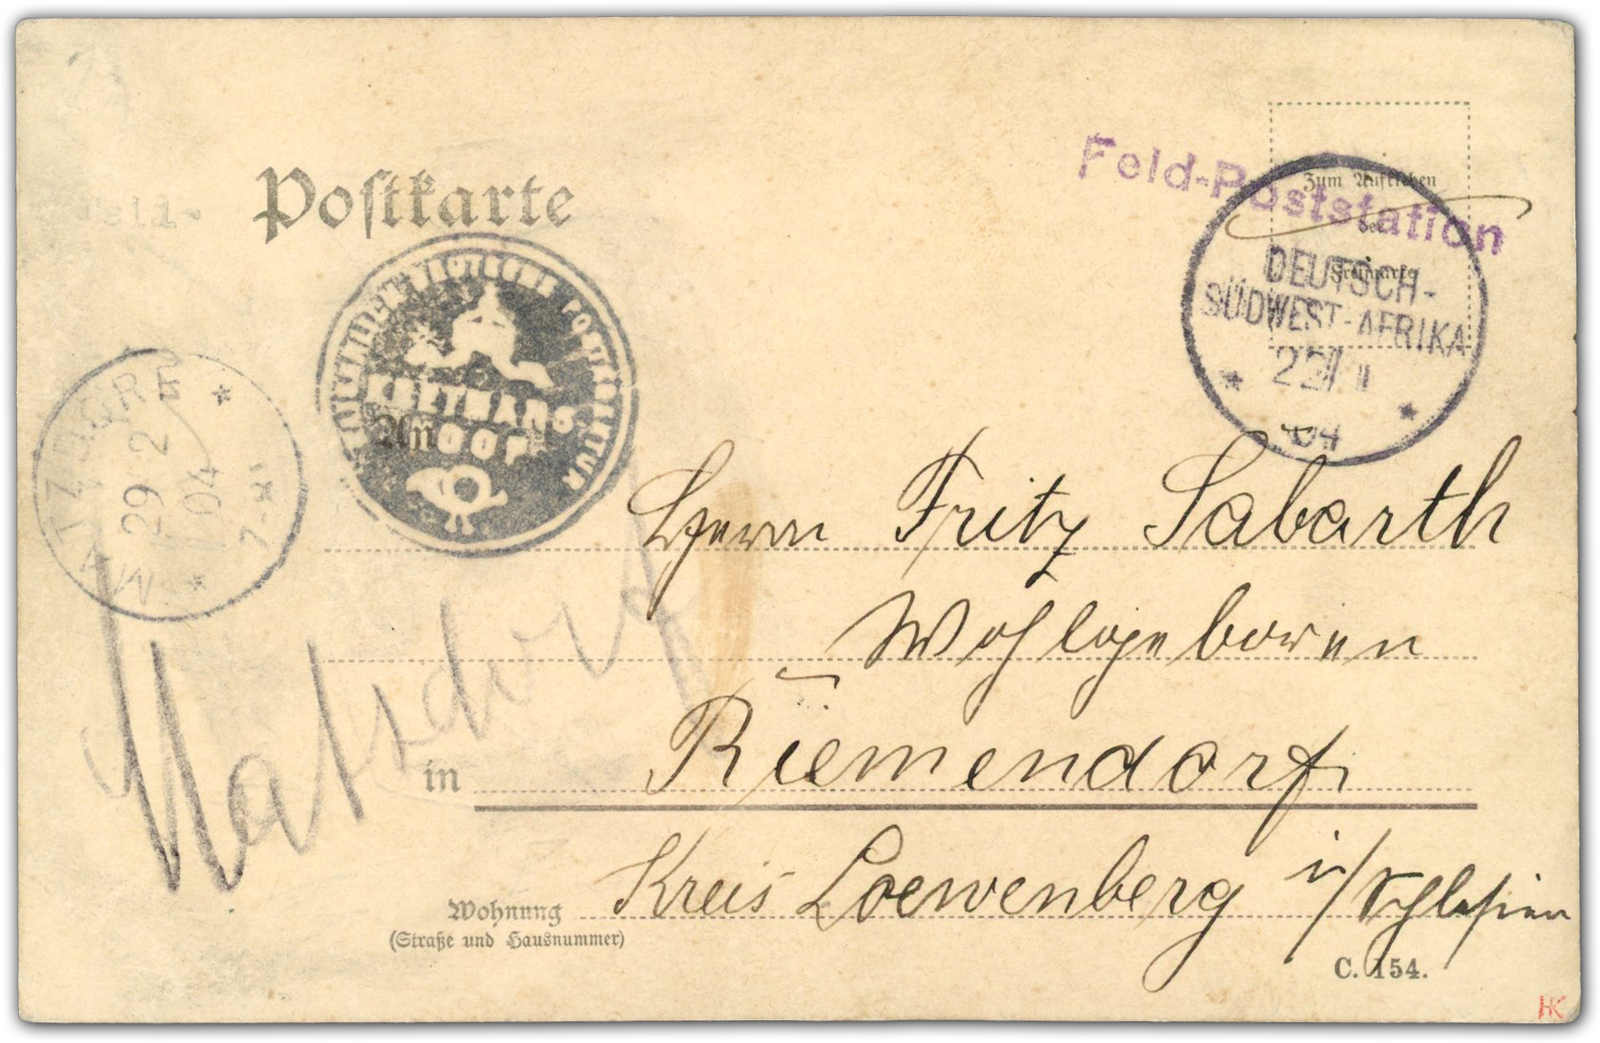 Postkarte
Feld-Poststation
Zum Aufkleben
der
Freimarke
DEUTSCH-
SÜDWEST-AFRIKA
22
04
KEETMANS
HOOP
An
MATZDORF
29 2
04
Herrn Fritz Sabarth
Wohlgeboren
in Riemendorf
Matzdorf
Kreis Loewenberg i/Schlesien
Wohnung
(Straße und Hausnummer)
C. 154.
HK